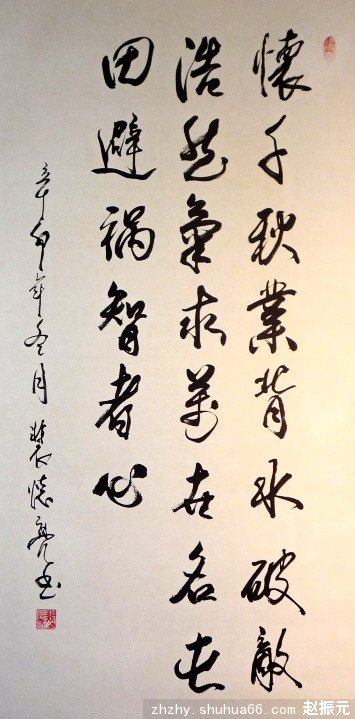 懷千秋業背水破敵
浩然氣求萬世名屯
田避祸智者心
辛卯年冬月 裴憶亮书
zhzhy.shuhua66.com 赵振元